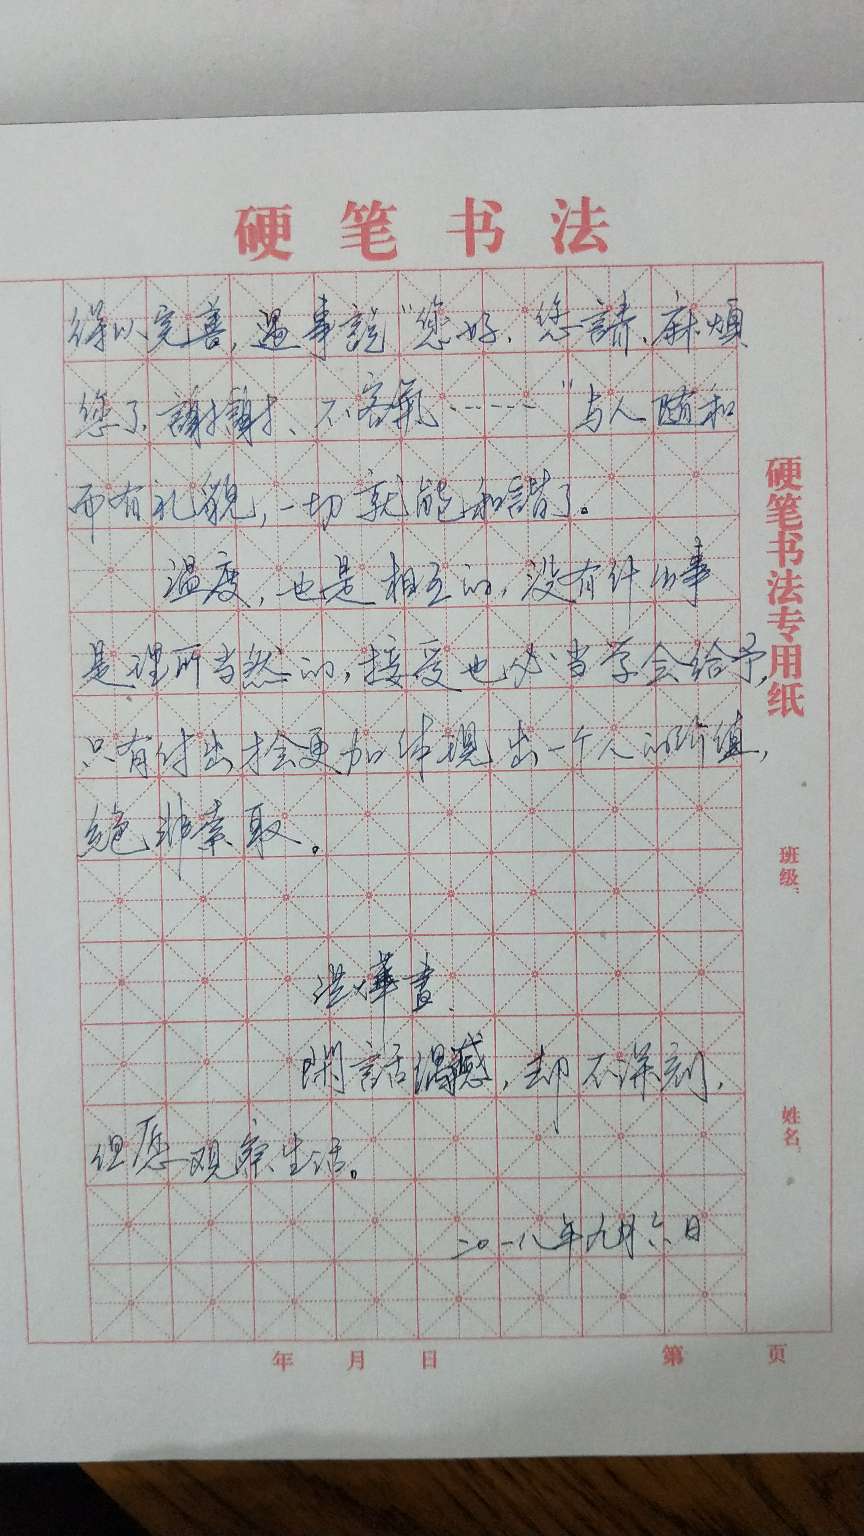 硬笔书法
得以完善,遇事説“您好、您請、麻煩
您了、謝謝、不客氣……”与人随和
而有礼貌,一切就能和諧了。
温度,也是相互的,没有什么事
是理所当然的,接受也必当学会给予,
只有付出才会更加体现出一个人的价值,
絶非索取。
洪燁書.
閑話偶感,却不深刻,
但愿观察生活。
二〇一八年九月六日
年 月 日 第 页
硬笔书法专用纸
班级:
姓名: